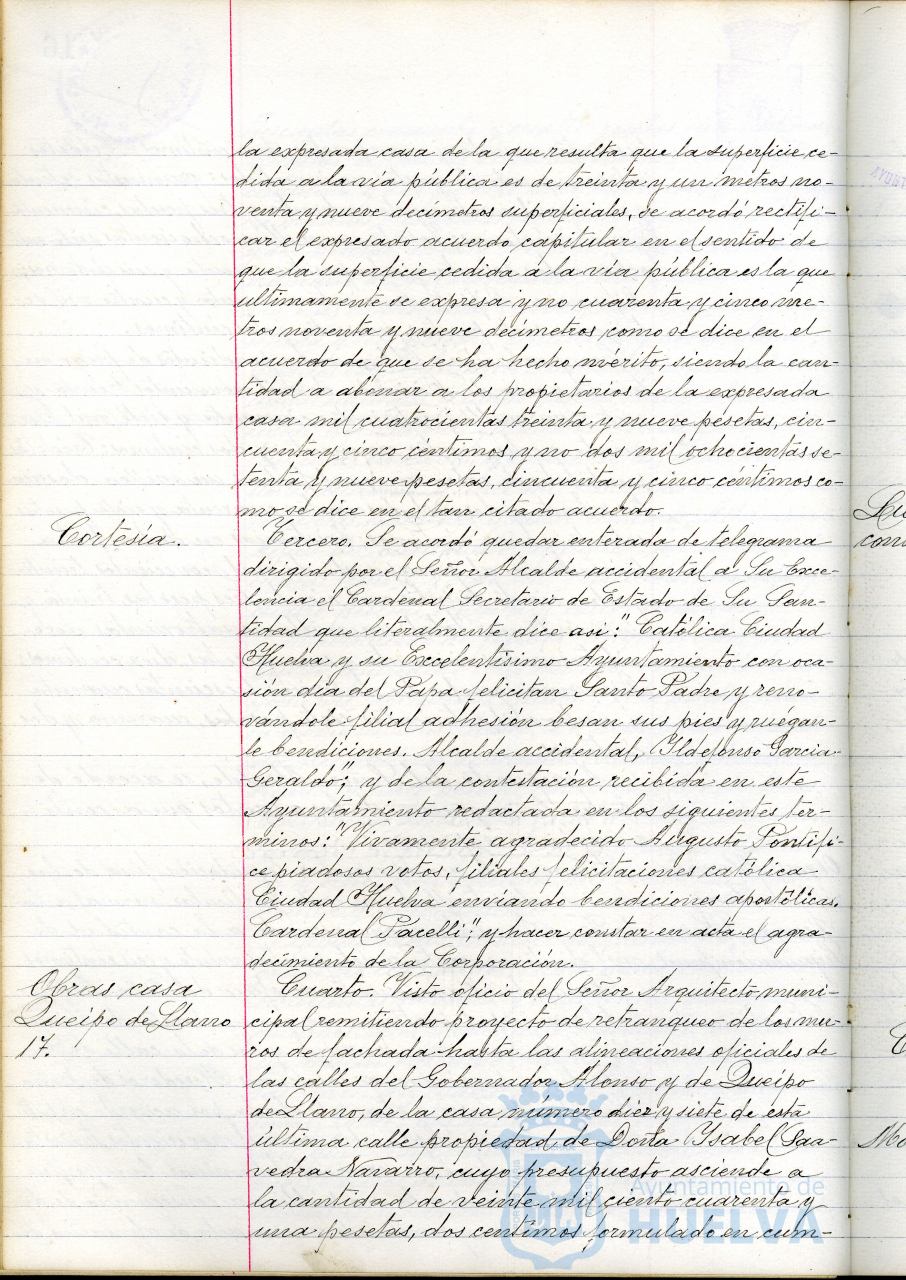 la expresada casa de la que resulta que la superficie ce-
dida a la vía pública es de treinta y un metros no-
venta y nueve decímetros superficiales, se acordó rectifi-
car el expresado acuerdo capitular en el sentido de
que la superficie cedida a la vía pública es la que
ultimamente se expresa y no cuarenta y cinco me-
tros noventa y nueve decímetros como se dice en el
acuerdo de que se ha hecho mérito, siendo la can-
tidad a abonar a los propietarios de la expresada
casa mil cuatrocientas treinta y nueve pesetas, cin-
cuenta y cinco céntimos y no dos mil ochocientas se-
tenta y nueve pesetas, cincuenta y cinco céntimos co-
mo se dice en el tan citado acuerdo.
Cortesía.
Tercero. Se acordó quedar enterada de telegrama
dirigido por el Señor Alcalde accidental a Su Exce-
lencia el Cardenal Secretario de Estado de Su San-
tidad que literalmente dice asi: "Católica Ciudad
Huelva y su Excelentísimo Ayuntamiento con oca-
sión dia del Papa felicitan Santo Padre y reno-
vándole filial adhesión besan sus pies y ruégan-
le bendiciones. Alcalde accidental, Ildefonso Garcia-
Geraldo"; y de la contestación recibida en este
Ayuntamiento redactada en los siguientes ter-
minos: "Vivamente agradecido Augusto Pontífi-
ce piadosos votos, filiales felicitaciones católica
Ciudad Huelva enviando bendiciones apostólicas.
Cardenal Pacelli"; y hacer constar en acta el agra-
decimiento de la Corporación.
Obras casa
Queipo de Llano
17.
Cuarto. Visto oficio del Señor Arquitecto muni-
cipal remitiendo proyecto de retranqueo de los mu-
ros de fachada hasta las alineaciones oficiales de
las calles del Gobernador Alonso y de Queipo
de Llano, de la casa número diez y siete de esta
última calle propiedad de Doña Ysabel Saa-
vedra Navarro, cuyo presupuesto asciende a
la cantidad de veinte mil ciento cuarenta y
una pesetas, dos centimos formulado en cum-
Ayuntamiento de
HUELVA